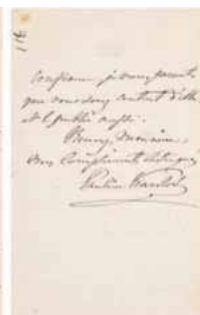 confiance, je vous garantis
que vous serez content d'elle
et le public aussi.
Recevez, Monsieur,
mes compliments distingués
Pauline Viardot